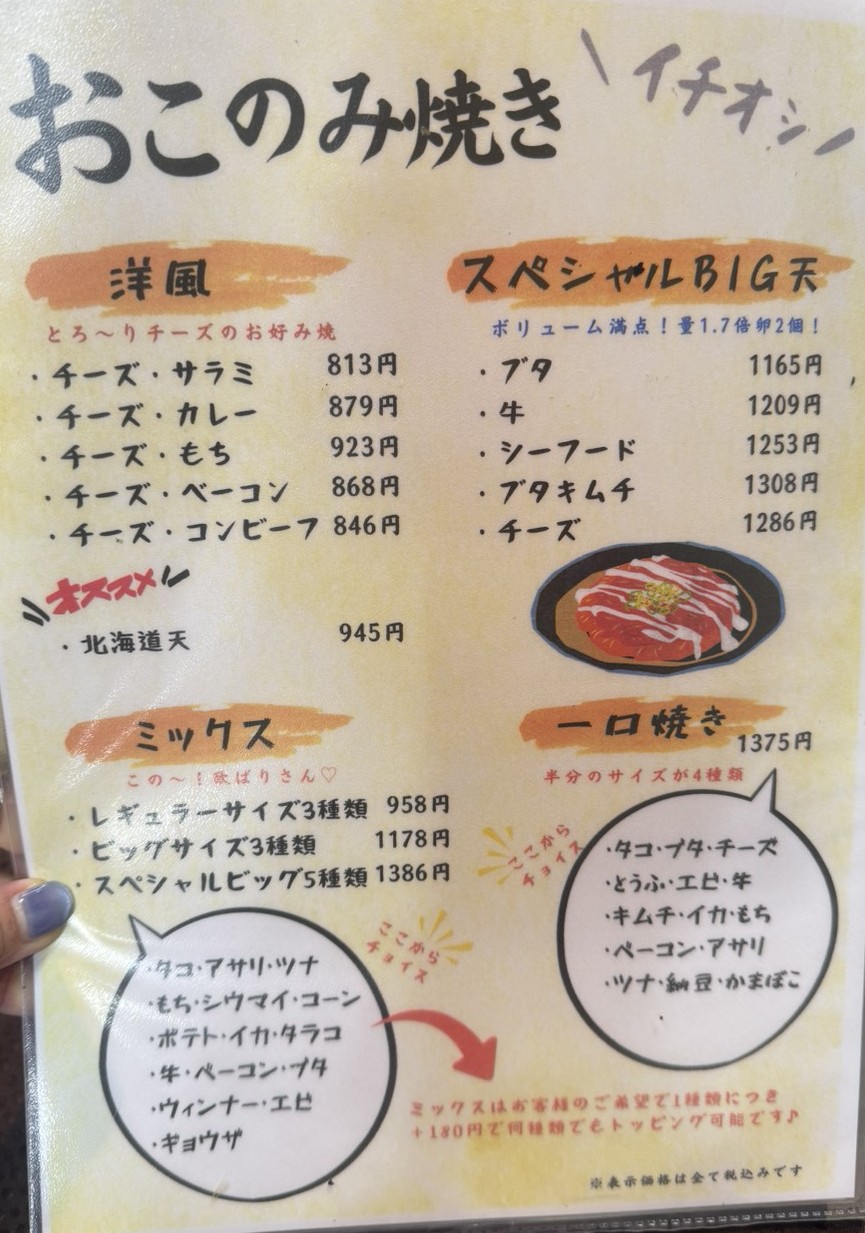 おこのみ焼き
イチオシ
洋風
とろ〜りチーズのお好み焼
・チーズ・サラミ 813円
・チーズ・カレー 879円
・チーズ・もち 923円
・チーズ・ベーコン 868円
・チーズ・コンビーフ 846円
オススメ
・北海道天 945円
スペシャルBIG天
ボリューム満点！量1.7倍卵2個！
・ブタ 1165円
・牛 1209円
・シーフード 1253円
・ブタキムチ 1308円
・チーズ 1286円
ミックス
この〜！欲ばりさん♡
・レギュラーサイズ3種類 958円
・ビッグサイズ3種類 1178円
・スペシャルビッグ5種類 1386円
ここから
チョイス
・タコ・アサリ・ツナ
・もち・シウマイ・コーン
・ポテト・イカ・タラコ
・牛・ベーコン・ブタ
・ウィンナー・エビ
・ギョウザ
一口焼き
1375円
半分のサイズが4種類
ここから
チョイス
・タコ・ブタ・チーズ
・とうふ・エビ・牛
・キムチ・イカ・もち
・ベーコン・アサリ
・ツナ・納豆・かまぼこ
ミックスはお客様のご希望で1種類につき
＋180円で何種類でもトッピング可能です♪
※表示価格は全て税込みです